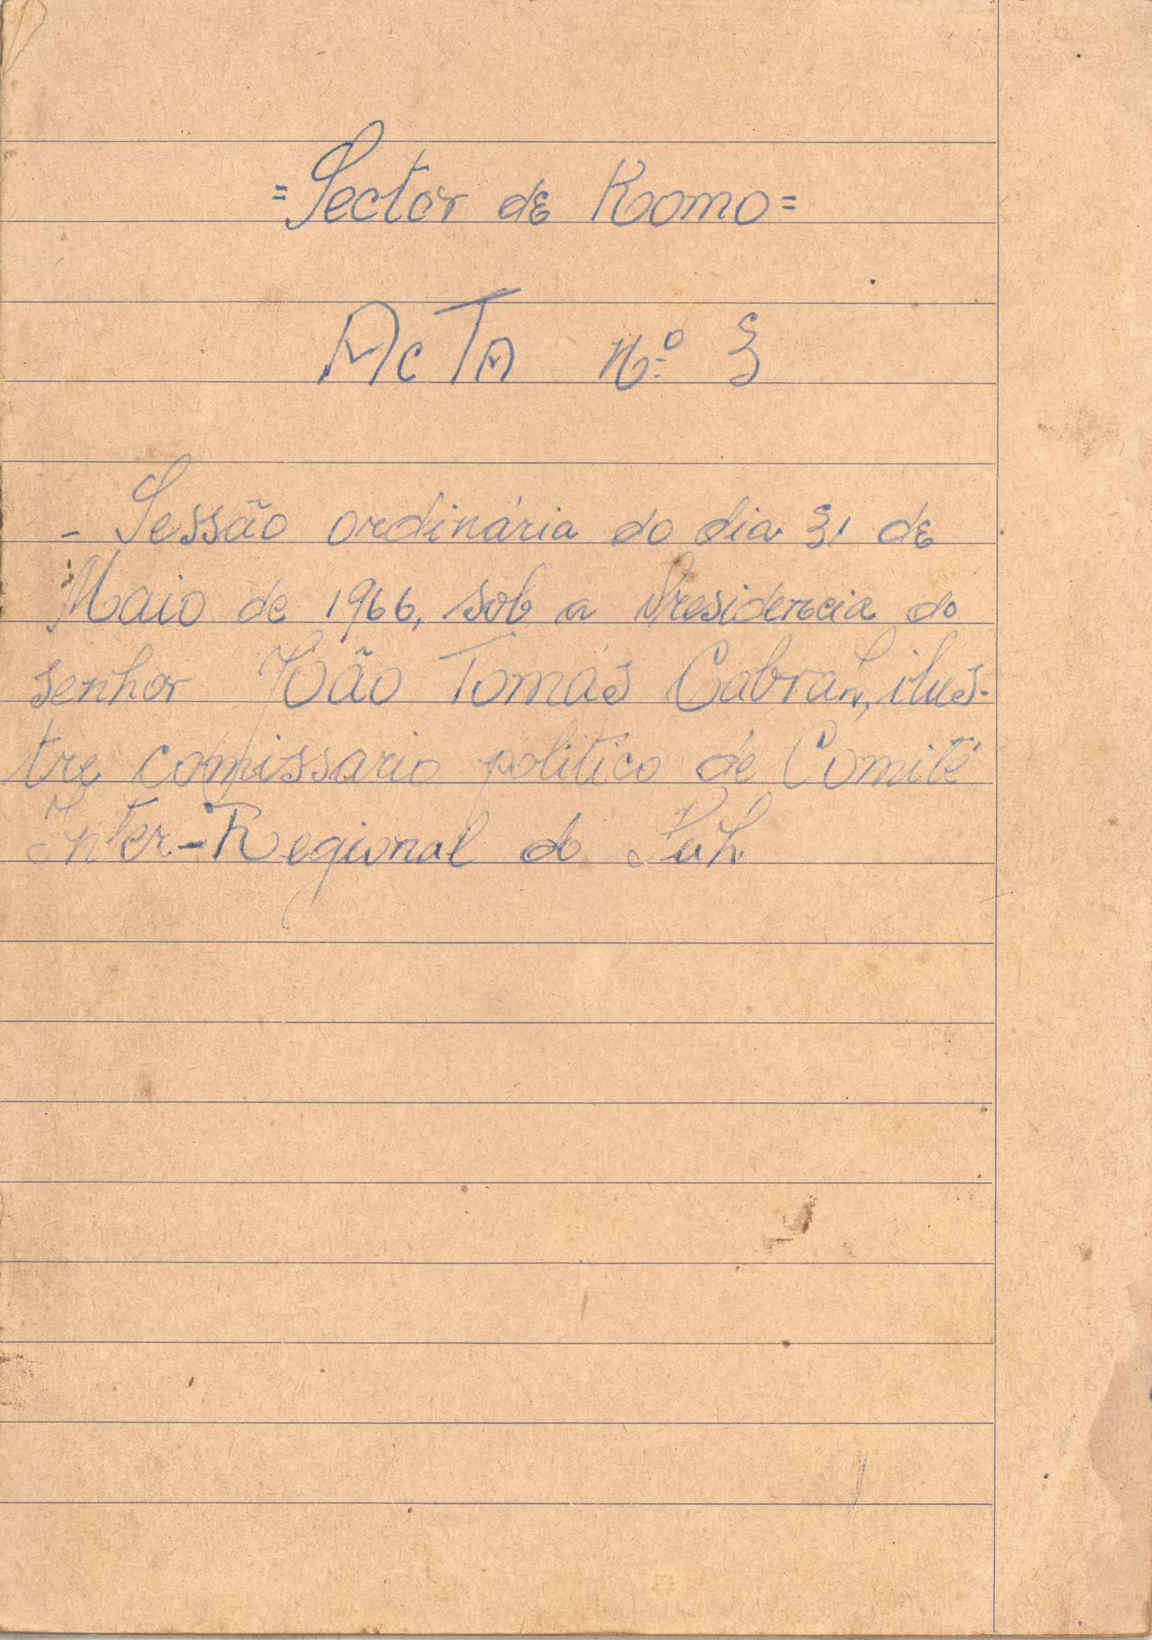 =Sector de Komo=
ACTA Nº 3
- Sessão ordinária do dia 31 de
Maio de 1966, sob a Presidencia do
senhor João Tomás Cabral, ilus-
tre comissario politico de Comité
Inter-Regional do Sul.